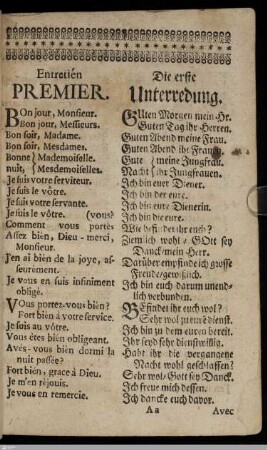 Entretién
PREMIER.
BOn jour, Monsieur.
Bon jour, Messieurs.
Bon soir, Madame.
Bon soir, Mesdames.
Bonne } Mademoiselle.
nuit, } Mesdemoiselles.
Je suis votre serviteur.
Je suis le vôtre.
Je suis votre servante.
Je suis le vôtre. (vous?
Comment vous portés
Assez bien, Dieu-merci,
Monsieur.
J'en ai bien de la joye, as-
seurément.
Je vous en suis infiniment
obligé.
VOus portez-vous bién?
Fort bién à vôtre service.
Je suis au vôtre.
Vous êtes bién obligeant.
Avés-vous bien dormi la
nuit passée?
Fort bién, grace à Dieu.
Je m'en réjouis.
Je vous en remercie.
Die erste
Unterredung.
GUten Morgen mein Hr.
Guten Tag ihr Herren.
Guten Abend meine Frau.
Guten Abend ihr Frauen.
Gute { meine Jungfrau.
Nacht { ihr Jungfrauen.
Ich bin euer Diener.
Ich bin der eure.
Ich bin eure Dienerin.
Ich bin die eure.
Wie befindet ihr euch?
Ziemlich wohl, GOtt sey
Danck/mein Herr.
Darüber empfinde ich grosse
Freude/gewißlich.
Ich bin euch darum unend-
lich verbunden.
BEfindet ihr euch wol?
Sehr wol zu eurē dienst.
Ich bin zu dem euren bereit.
Ihr seyd sehr dienstwillig.
Habt ihr die vergangene
Nacht wohl geschlaffen?
Sehr wol/Gott sey Danck.
Ich freue mich dessen.
Ich dancke euch davor.
Aa
Avec